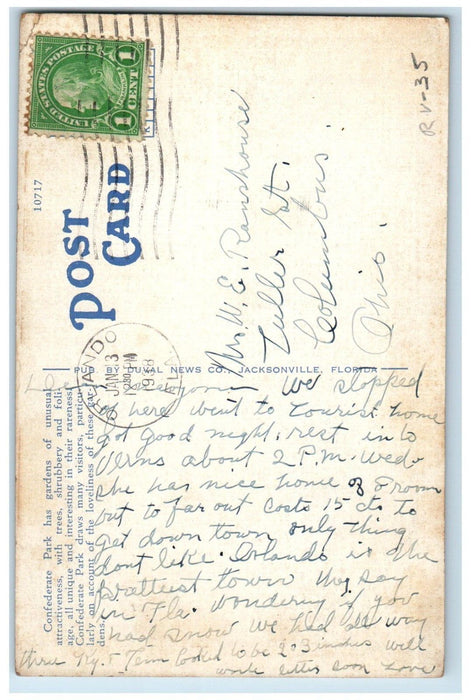 UNITED STATES POSTAGE
1 CENT 1
R V-35
10717
POST
CARD
ORLANDO
JAN 3
12 30 PM
1938
FLA.
Mr. W. E. Ranshouse
Tuller St.
Columbus
Ohio.
PUB. BY DUVAL NEWS CO., JACKSONVILLE, FLORIDA
Confederate Park has gardens of unusual
attractiveness, with trees, shrubbery and foli-
age, all unique and interesting in their rareness.
Confederate Park draws many visitors, particu-
larly on account of the loveliness of these gar-
dens.
We stopped
here went to tourist home
got good night, rest in to
Verns about 2 P.M. Wed.
she has nice home of 5 room
but to far out costs 15 cts to
get down town only thing
dont like. Orlando is the
prattiest town they say
in Fla. wondering if you
had snow we had all way
thru Ky. & Tenn looked to be 2 or 3 inches will
write letter soon Love